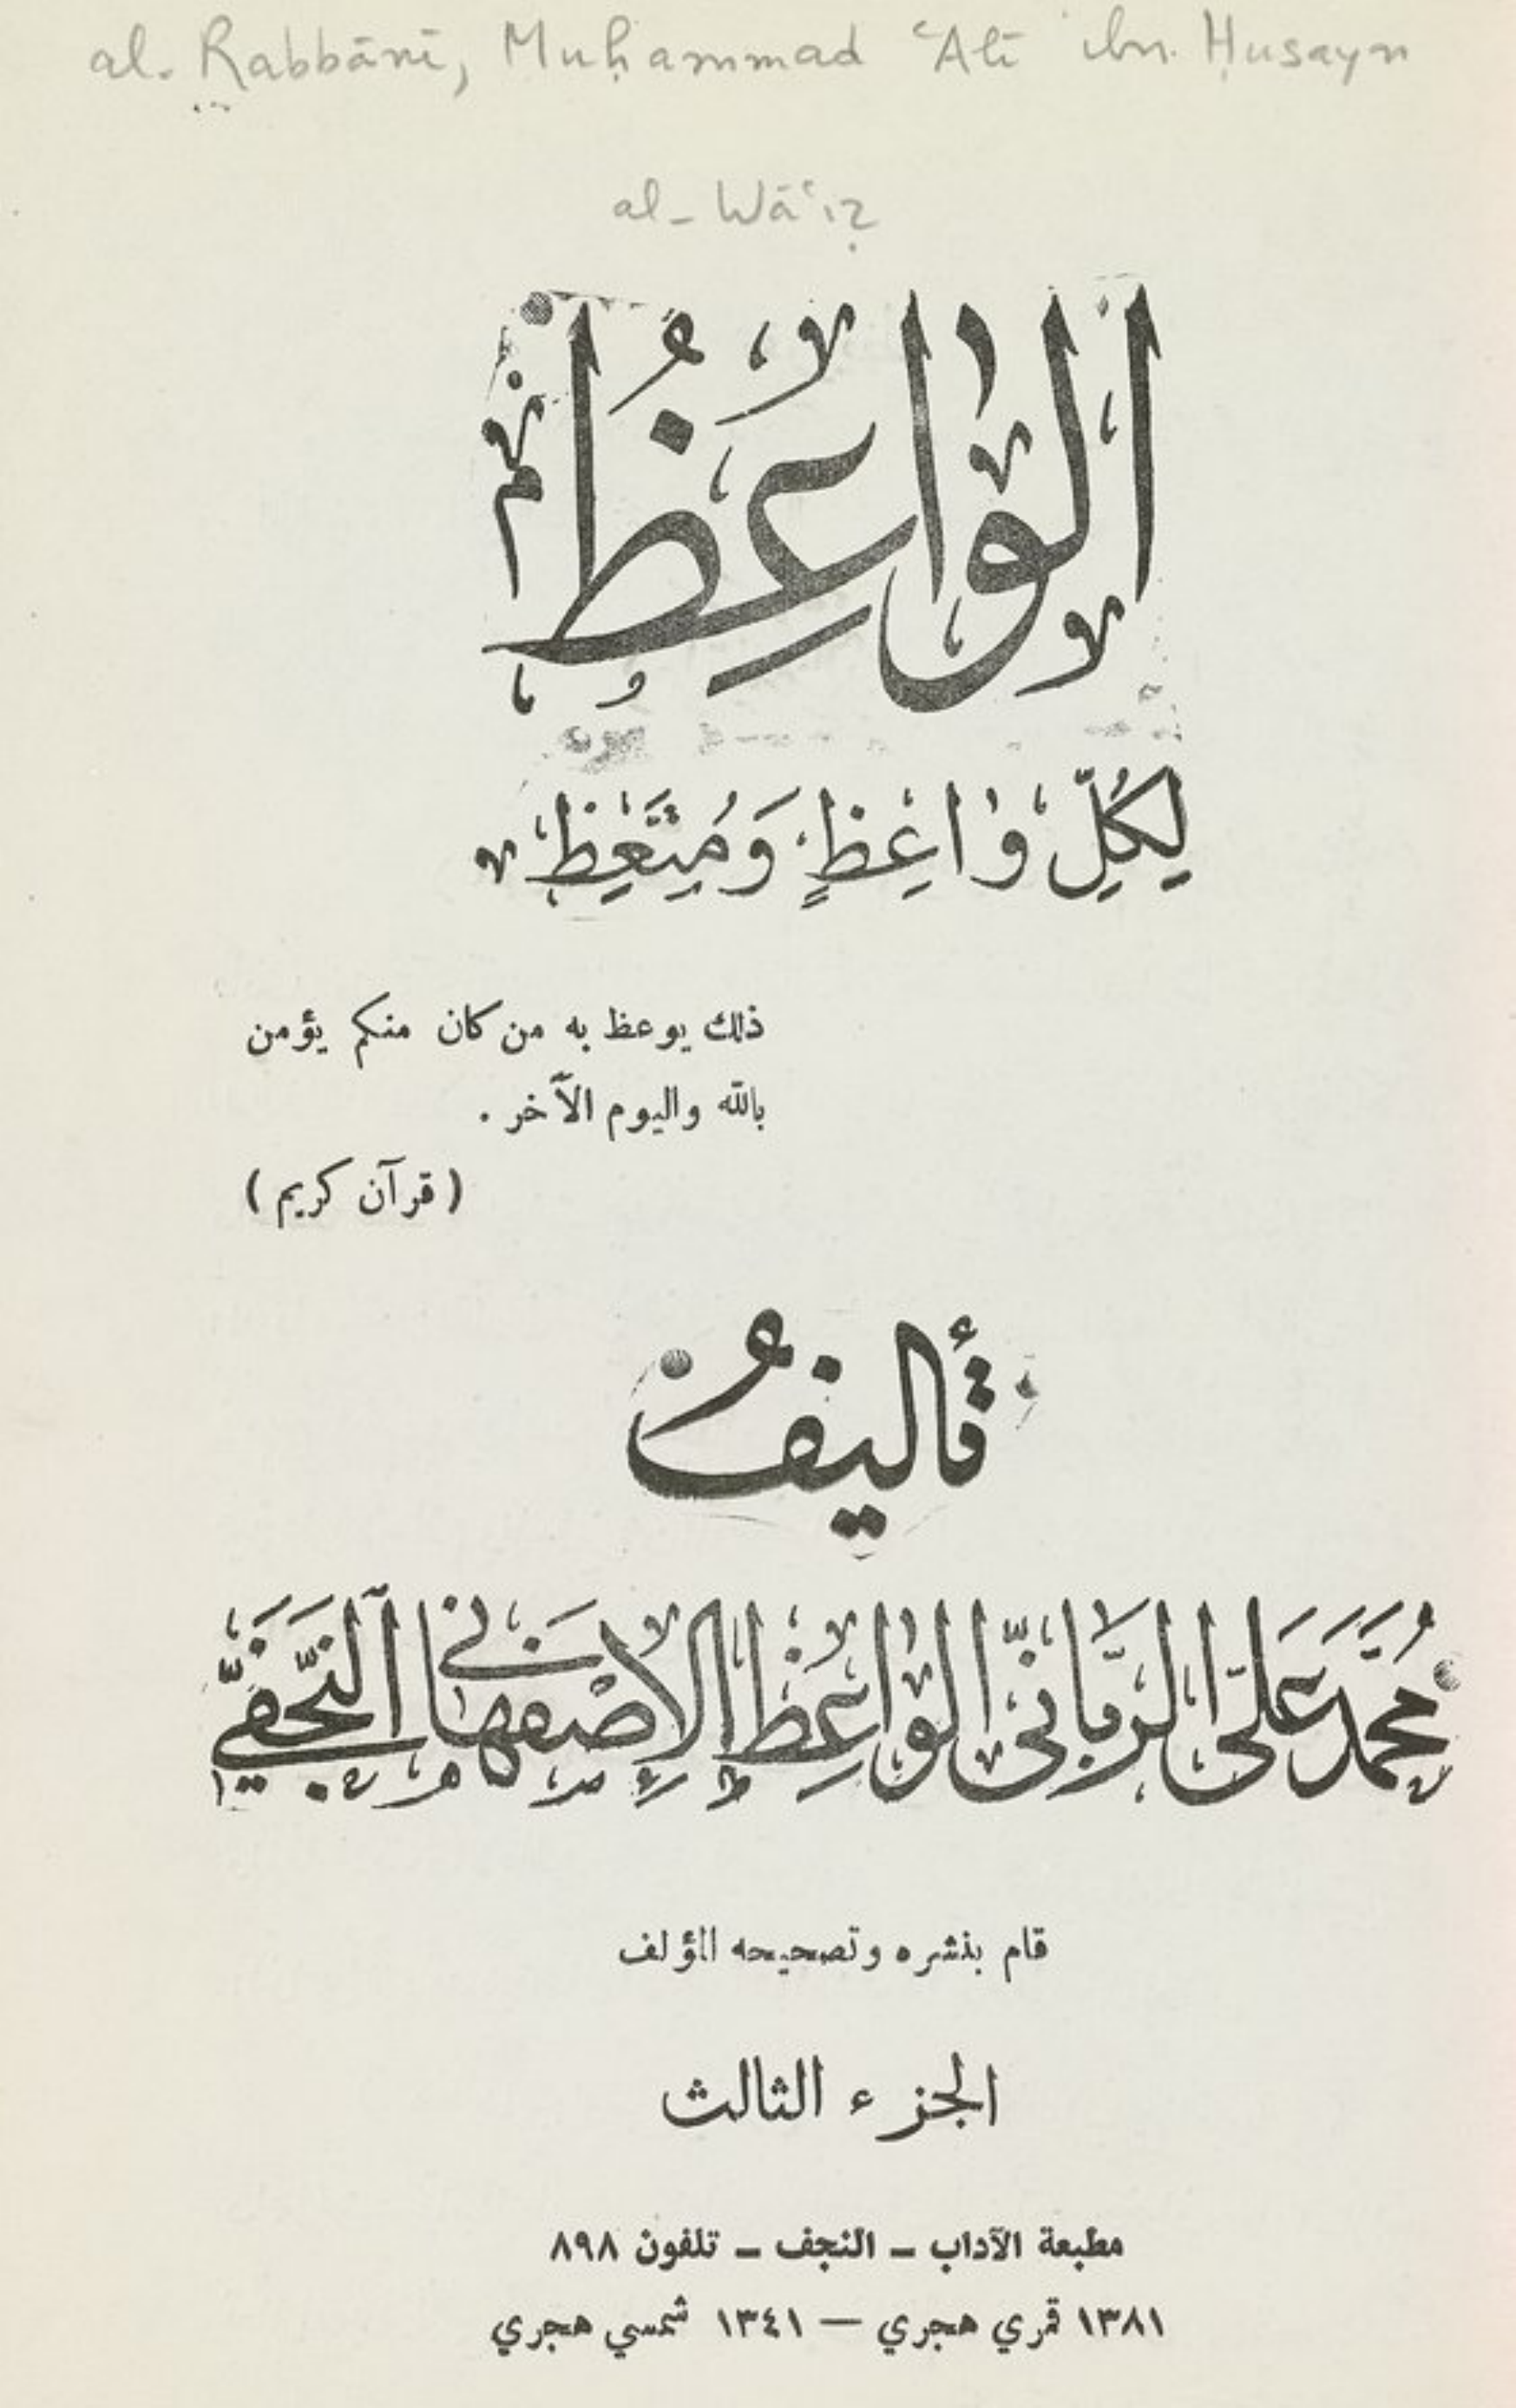 al-Rabbānī, Muḥammad ʿAlī ibn Ḥusayn
al-Wāʿiẓ
الوَاعِظُ
لِكُلِّ وٰاعِظٍ وَمُتَّعِظٍ
ذلك يوعظ به من كان منكم يؤمن
بالله واليوم الآخر .
( قرآن كريم )
تأليفُ
مُحَمَّد عَلي الرَّبّاني الوٰاعِظ الإصْفَهاني النَّجَفيّ
قام بنشره وتصحيحه المؤلف
الجزء الثالث
مطبعة الآداب ــ النجف ــ تلفون ٨٩٨
١٣٨١ قمري هجري — ١٣٤١ شمسي هجري